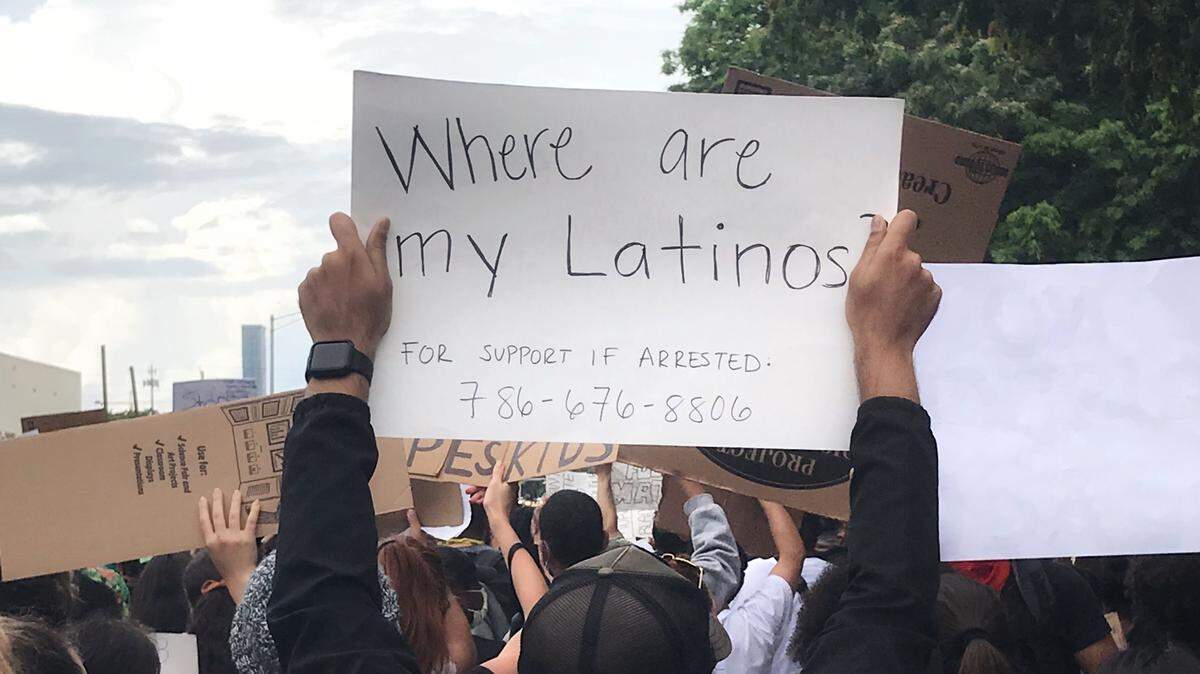 Where are
my Latinos?
FOR SUPPORT IF ARRESTED:
786-676-8806
Crea
Use for:
✓ Science Fair and
Art Projects
✓ Classroom
Displays
✓ Presentations
PESKIDS
PROJEC